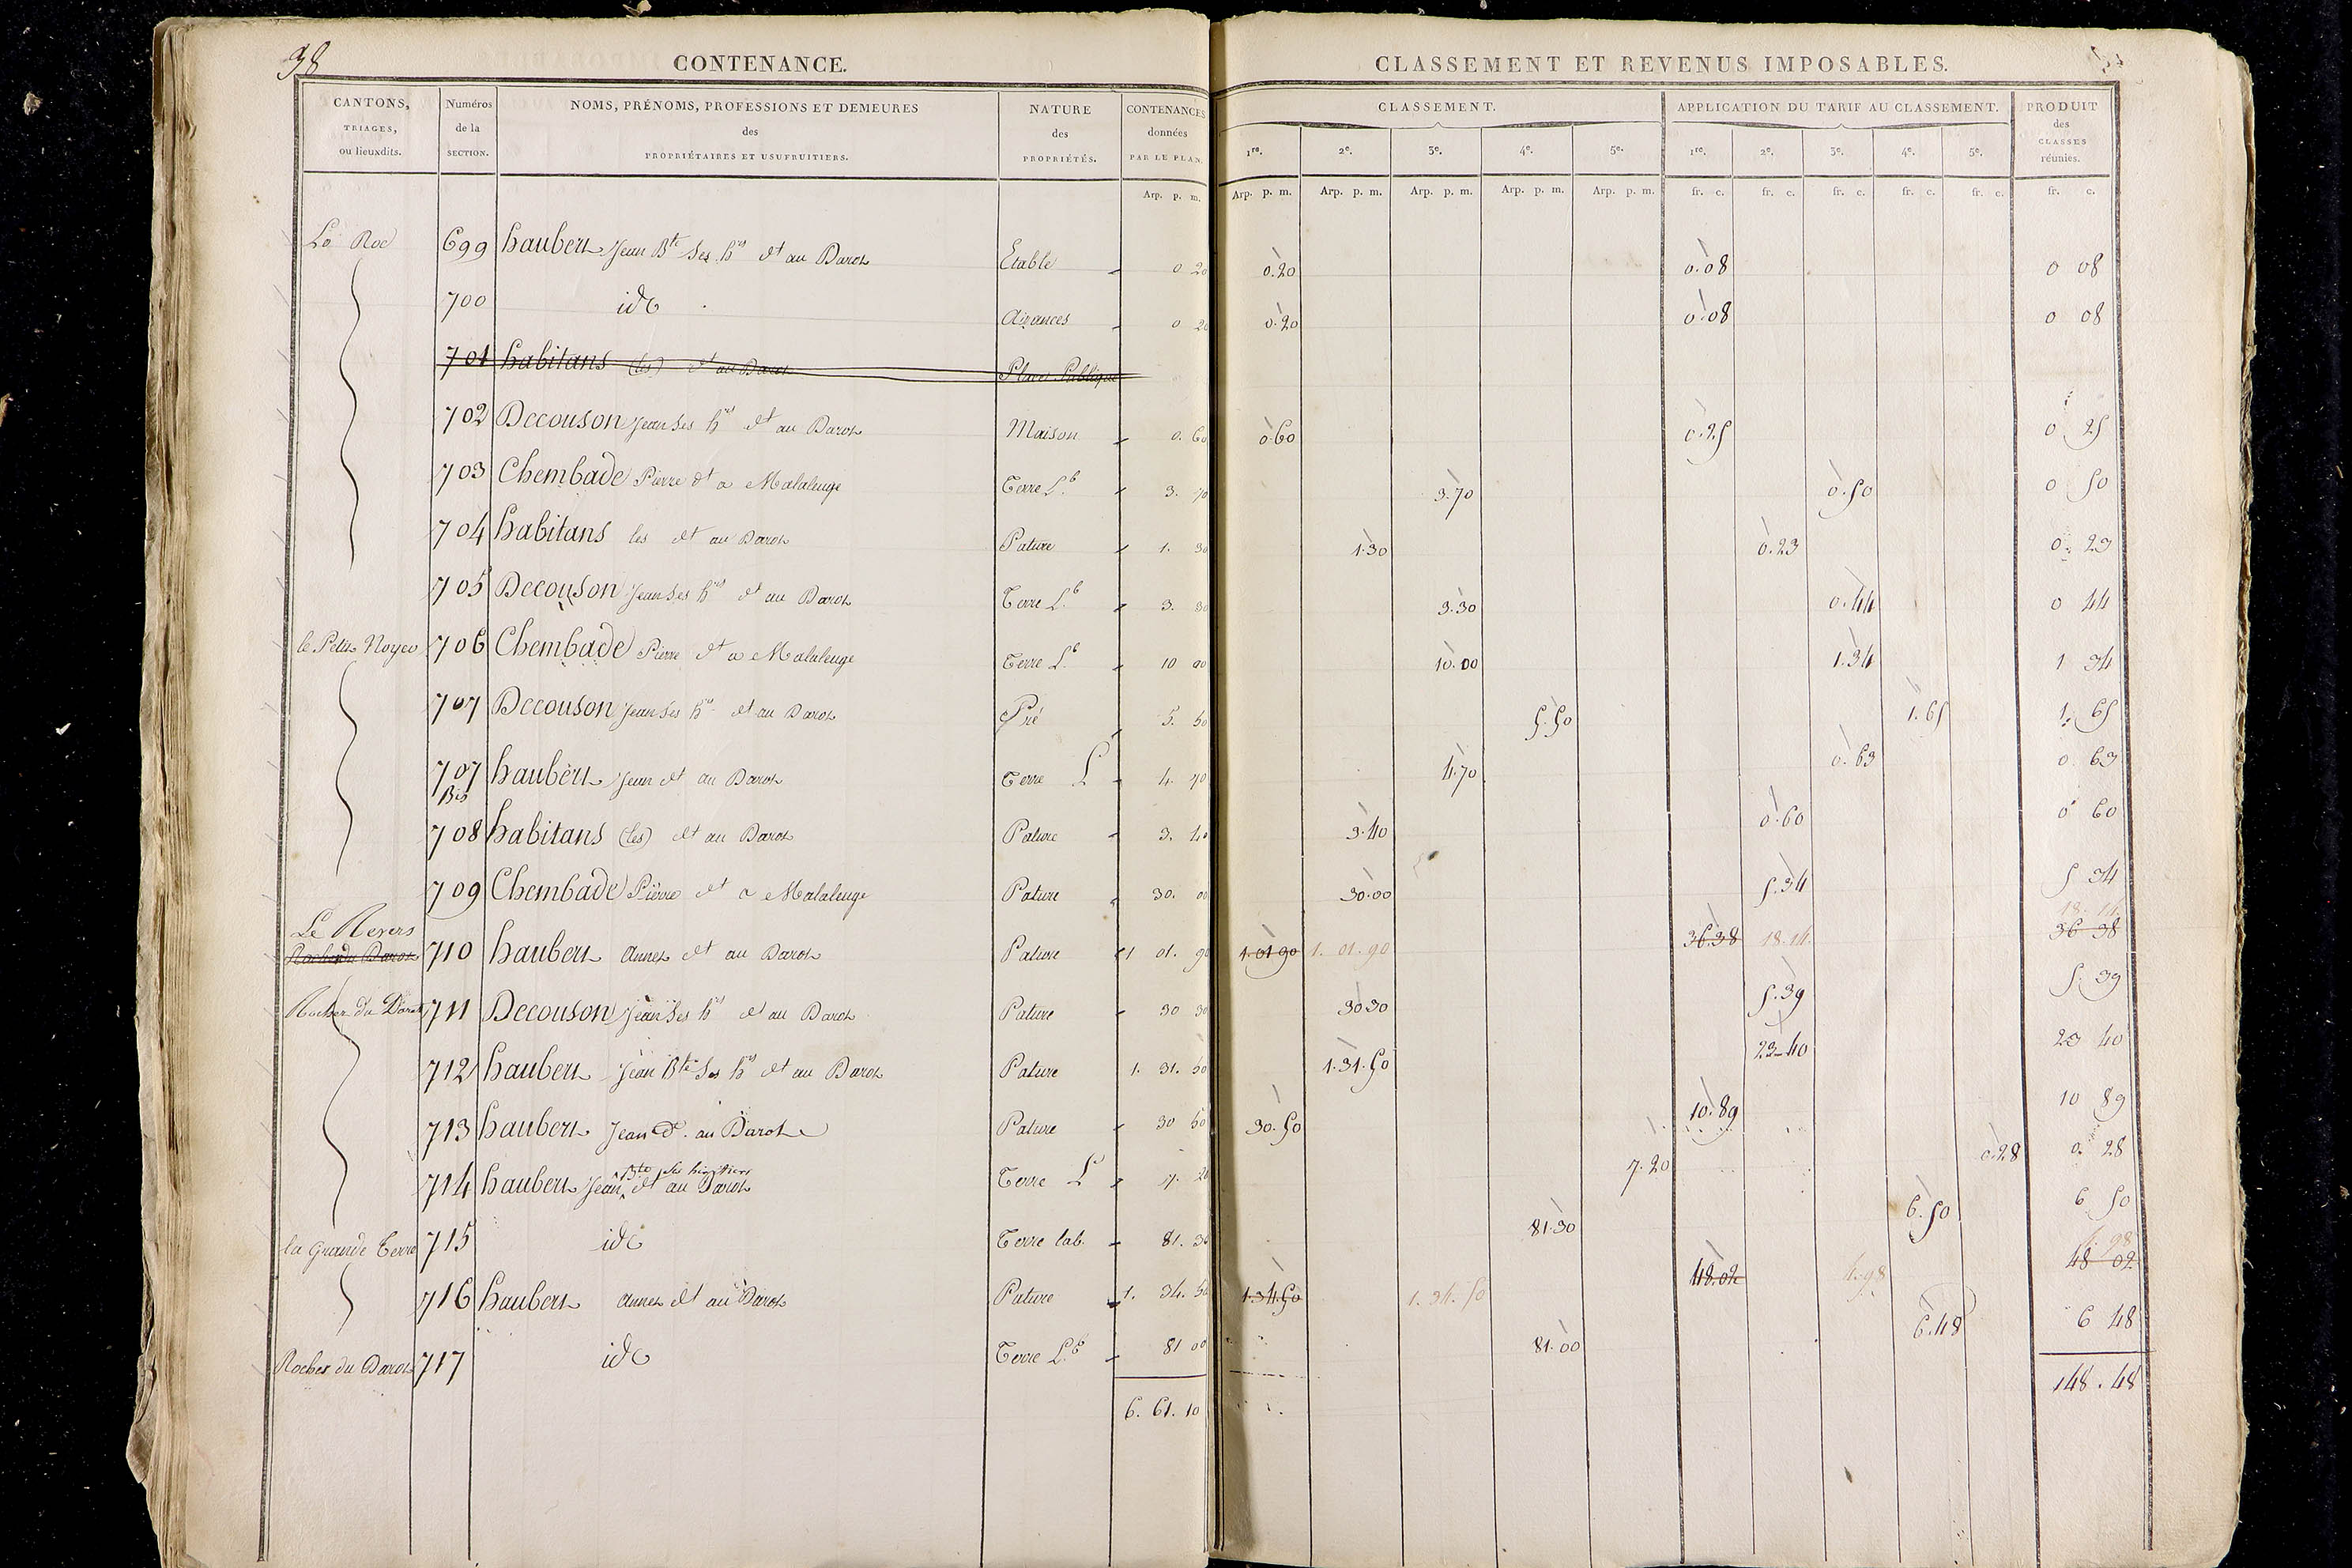 38 CONTENANCE. CLASSEMENT ET REVENUS IMPOSABLES.
CANTONS, TRIAGES, ou lieuxdits. Numéros de la SECTION. NOMS, PRÉNOMS, PROFESSIONS ET DEMEURES des PROPRIÉTAIRES ET USUFRUITIERS. NATURE des PROPRIÉTÉS. CONTENANCES données PAR LE PLAN. CLASSEMENT. APPLICATION DU TARIF AU CLASSEMENT. PRODUIT des CLASSES réunies.
1re. 2e. 3e. 4e. 5e. 1re. 2e. 3e. 4e. 5e.
Arp. p. m. Arp. p. m. Arp. p. m. Arp. p. m. Arp. p. m. Arp. p. m. fr. c. fr. c. fr. c. fr. c. fr. c. fr. c.
Le Roc 699 haubert Jean Bte Ses hrs dt au Barot Etable 0 20 0.20 0.08 0 08
700 ide Aizances 0 20 0.20 0.08 0 08
701 habitans (les) dt au Barot Place Publique
702 Decouson Jean Ses hrs dt au Barot Maison 0. 60 0.60 0.25 0 25
703 Chembade Pierre dt a Malaleuge Terre Lb 3. 70 3.70 0.50 0 50
704 habitans les dt au Barot Pature 1. 30 1.30 0.23 0. 23
705 Decouson Jean Ses hrs dt au Barot Terre Lb 3. 30 3.30 0.44 0 44
le Petit Noyer 706 Chembade Pierre dt a Malaleuge Terre Lb 10 00 10.00 1.34 1 34
707 Decouson Jean Ses hrs dt au Barot Pré 5. 50 5.50 1.65 1. 65
707 Bis haubert Jean dt au Barot Terre L 4. 70 4.70 0.63 0 63
708 habitans (les) dt au Barot Pature 3. 40 3.40 0.60 0 60
709 Chembade Pierre dt a Malaleuge Pature 30. 00 30.00 5.34 5 34
Le Revers 18.14
Rocher du Barot 710 haubert Annet dt au Barot Pature 1 01. 90 1.01.90 1.01.90 36.38 18.14 36 38
Rocher du Barot 711 Decouson Jean Ses hrs dt au Barot Pature 30 30 30.30 5.39 5. 39
712 haubert Jean Bte Ses hrs dt au Barot Pature 1. 31. 50 1.31.50 23.40 23 40
713 haubert Jean dt au Barot Pature 30 50 30.50 10.89 10 89
714 haubert Jean Bte Ses héritiers dt au Barot Terre L 7. 20 7.20 0.28 0. 28
la Grande Terre 715 ide Terre lab. 81. 30 81.30 6.50 6 50
4.98
716 haubert Annet dt au Barot Pature 1. 34. 50 1.34.50 1.34.50 48.02 4.98 48 02
Rocher du Barot 717 ide Terre Lb 81 00 81.00 6.48 6 48
6. 61. 10 148.48